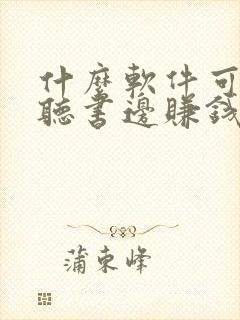 什麼軟件可
聽書邊賺錢
蒲東峰